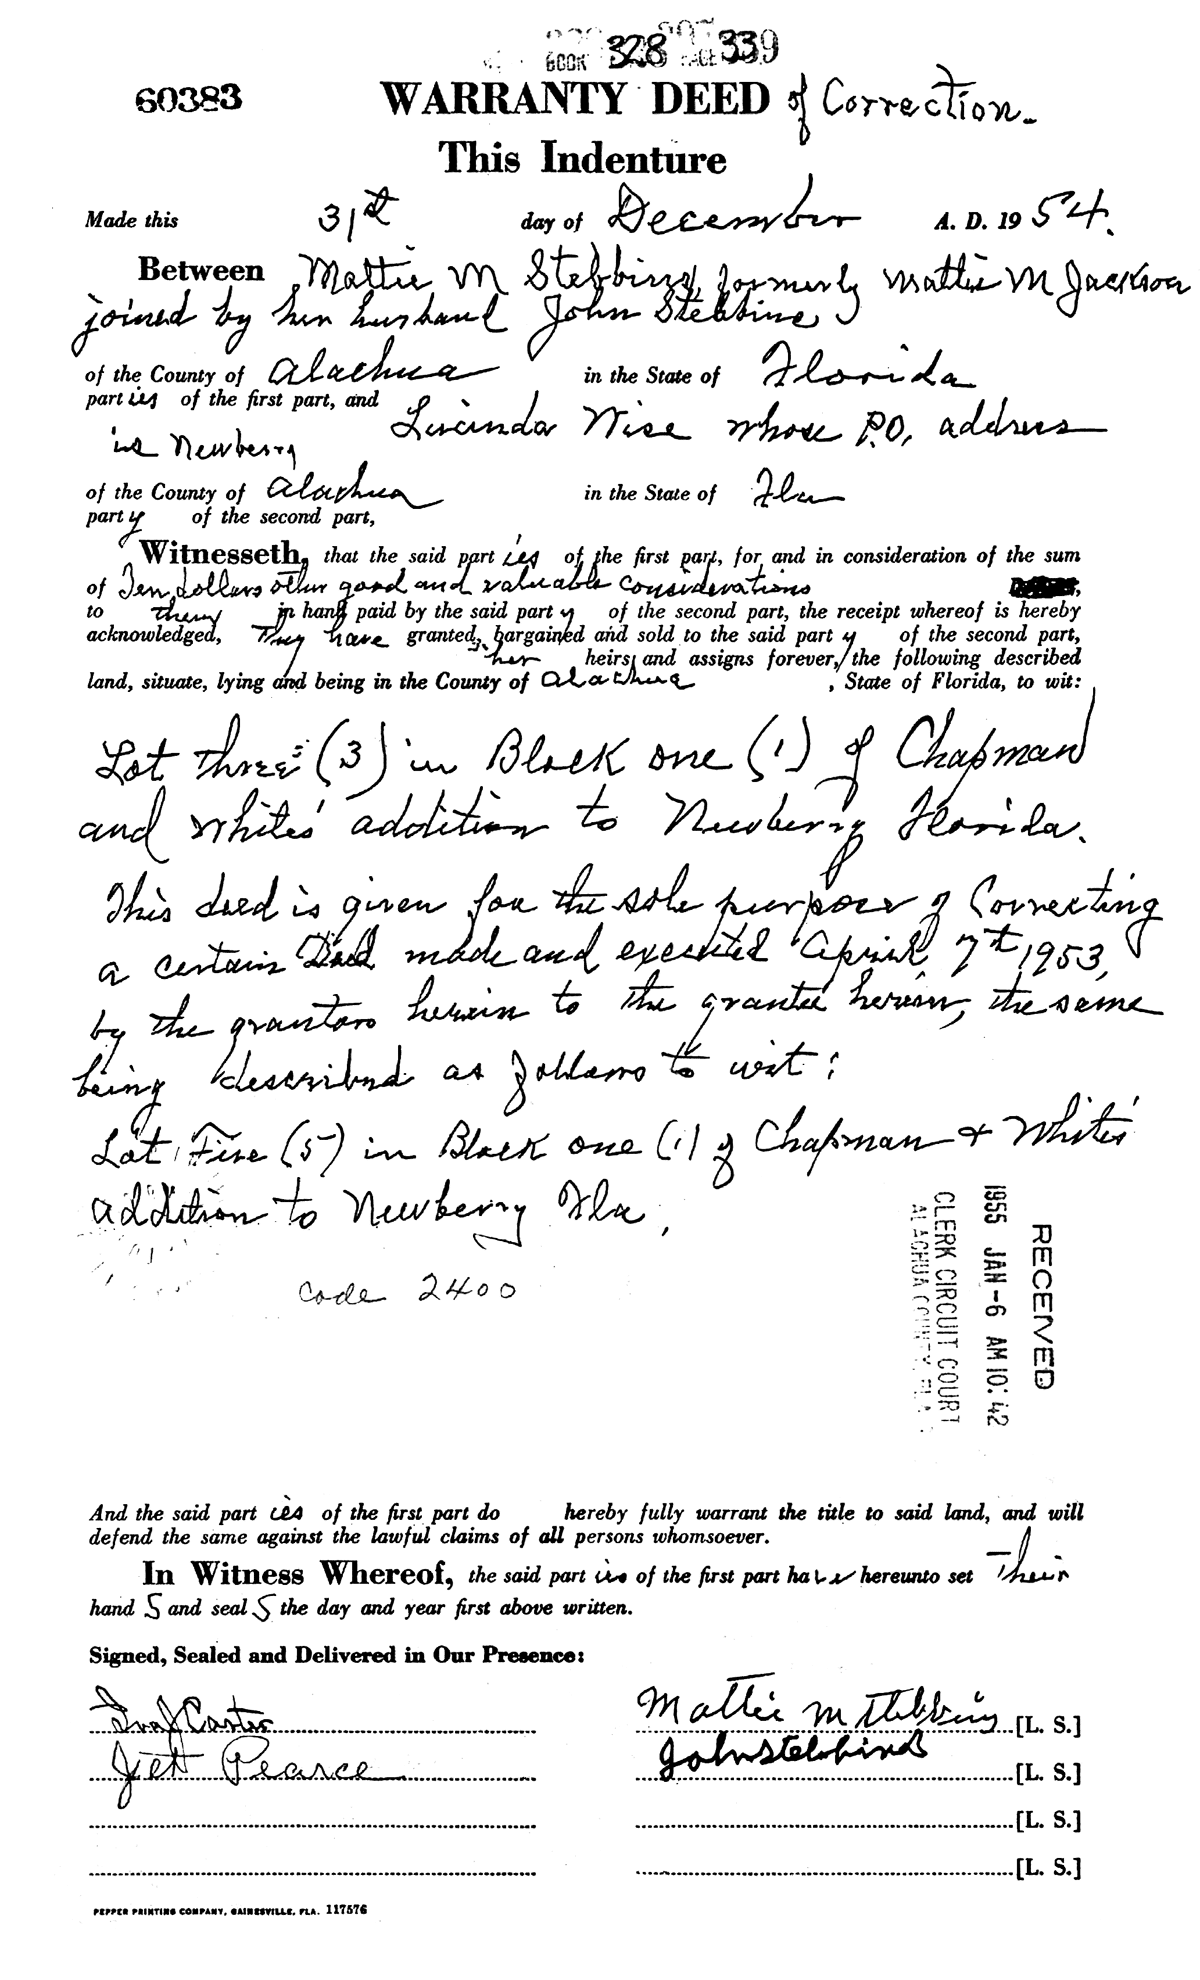 BOOK 328 PAGE 339
60383
WARRANTY DEED of Correction.
This Indenture
Made this 31st day of December A. D. 19 54.
Between Mattie M Stebbins, formerly Mattie M Jackson
joined by her husband John Stebbins
of the County of Alachua in the State of Florida
part ies of the first part, and Lucinda Wise whose P.O. address
is Newberry
of the County of Alachua in the State of Fla
part y of the second part,
Witnesseth, that the said part ies of the first part, for and in consideration of the sum
of Ten dollars other good and valuable considerations
to them in hand paid by the said part y of the second part, the receipt whereof is hereby
acknowledged, They have granted, bargained and sold to the said part y of the second part,
her heirs and assigns forever, the following described
land, situate, lying and being in the County of Alachua , State of Florida, to wit:
Lot three (3) in Block one (1) of Chapman
and White's addition to Newberry Florida.
This deed is given for the sole purpose of Correcting
a certain Deed made and executed April 7th 1953,
by the grantors herein to the grantee herein, the same
being described as follows to wit:
Lot Five (5) in Block one (1) of Chapman & White's
addition to Newberry Fla.
code 2400
RECEIVED
1955 JAN -6 AM 10:42
CLERK CIRCUIT COURT
ALACHUA COUNTY, FLA.
And the said part ies of the first part do hereby fully warrant the title to said land, and will
defend the same against the lawful claims of all persons whomsoever.
In Witness Whereof, the said part ies of the first part have hereunto set Their
hand S and seal S the day and year first above written.
Signed, Sealed and Delivered in Our Presence:
Ira J Carter Mattie M Stebbins [L. S.]
Jett Pearce John Stebbins [L. S.]
[L. S.]
[L. S.]
PEPPER PRINTING COMPANY, GAINESVILLE, FLA. 117576